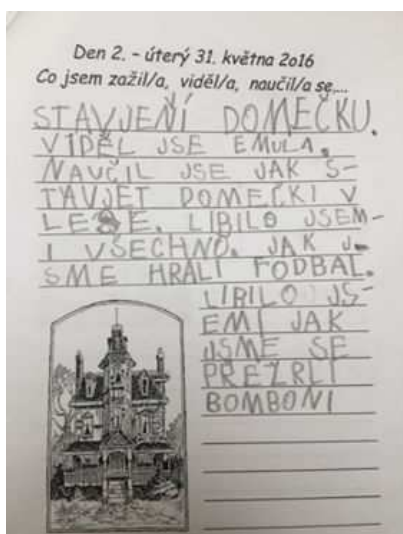 Den 2. – úterý 31. května 2016
Co jsem zažil/a, viděl/a, naučil/a se,...
STAVJEŇÍ DOMEČKU.
VIDĚL JSE EMULA.
NAUČIL JSE JAK S-
TAVJET DOMEČKI V
LESE. LIBILO JSEM-
I VŠECHNO. JAK J-
SME HRÁLI FODBAL.
LIBILO JS-
EMI JAK
JSME SE
PŘEŽRLI
BOMBONI